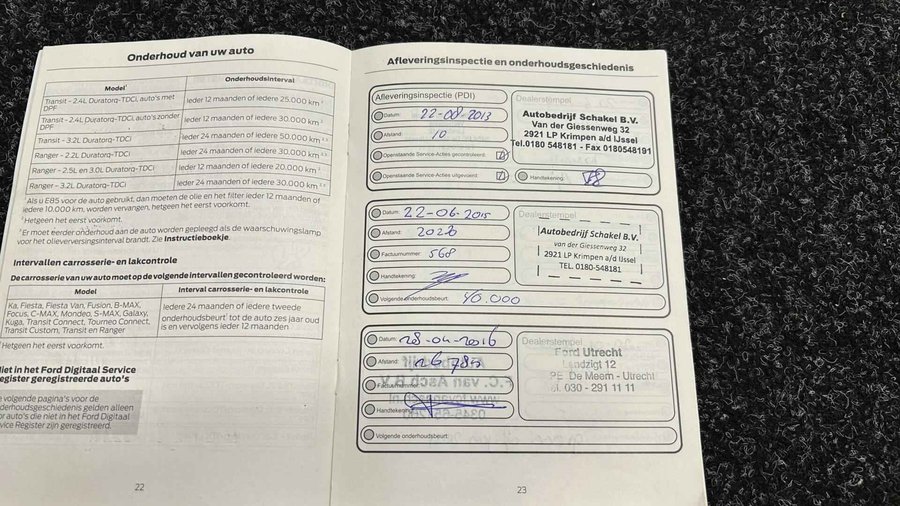 Onderhoud van uw auto
Model Onderhoudsinterval
Transit - 2.4L Duratorq-TDCi, auto's met DPF Ieder 12 maanden of iedere 25.000 km
Transit - 2.4L Duratorq-TDCi, auto's zonder DPF Ieder 12 maanden of iedere 30.000 km
Transit - 3.2L Duratorq-TDCi Ieder 24 maanden of iedere 50.000 km
Ranger - 2.2L Duratorq-TDCi Ieder 24 maanden of iedere 30.000 km
Ranger - 2.5L en 3.0L Duratorq-TDCi Ieder 12 maanden of iedere 20.000 km
Ranger - 3.2L Duratorq-TDCi Ieder 24 maanden of iedere 30.000 km
Als u E85 voor de auto gebruikt, dan moeten de olie en het filter ieder 12 maanden of
iedere 10.000 km, worden vervangen, hetgeen het eerst voorkomt.
Hetgeen het eerst voorkomt.
Er moet eerder onderhoud aan de auto worden gepleegd als de waarschuwingslamp
voor het olieverversingsinterval brandt. Zie Instructieboekje.
Intervallen carrosserie- en lakcontrole
De carrosserie van uw auto moet op de volgende intervallen gecontroleerd worden:
Model Interval carrosserie- en lakcontrole
Ka, Fiesta, Fiesta Van, Fusion, B-MAX,
Focus, C-MAX, Mondeo, S-MAX, Galaxy,
Kuga, Transit Connect, Tourneo Connect,
Transit Custom, Transit en Ranger
Iedere 24 maanden of iedere tweede
onderhoudsbeurt tot de auto zes jaar oud
is en vervolgens ieder 12 maanden
Hetgeen het eerst voorkomt.
in het Ford Digitaal Service
geregistreerde auto's
volgende pagina's voor de
gelden alleen
auto's die niet in het Ford Digitaal
Service Register zijn geregistreerd.
22
Afleveringsinspectie en onderhoudsgeschiedenis
Afleveringsinspectie (PDI)
Datum: 22-08-2013
Afstand: 10
Openstaande Service-Acties gecontroleerd:
Openstaande Service-Acties uitgevoerd:
Dealerstempel
Autobedrijf Schakel B.V.
Van der Giessenweg 32
2921 LP Krimpen a/d IJssel
Tel.0180 548181 - Fax 0180548191
Handtekening:
Datum: 22-06-2015
Afstand:
Factuurnummer: 568
Handtekening:
Volgende onderhoudsbeurt: 40.000
Dealerstempel
Autobedrijf Schakel B.V.
van der Giessenweg 32
2921 LP Krimpen a/d IJssel
TEL. 0180-548181
Datum: 28-04-2016
Afstand:
Factuurnummer:
Handtekening:
Volgende onderhoudsbeurt:
Dealerstempel
Ford Utrecht
Landzigt 12
De Meern - Utrecht
030 - 291 11 11
23